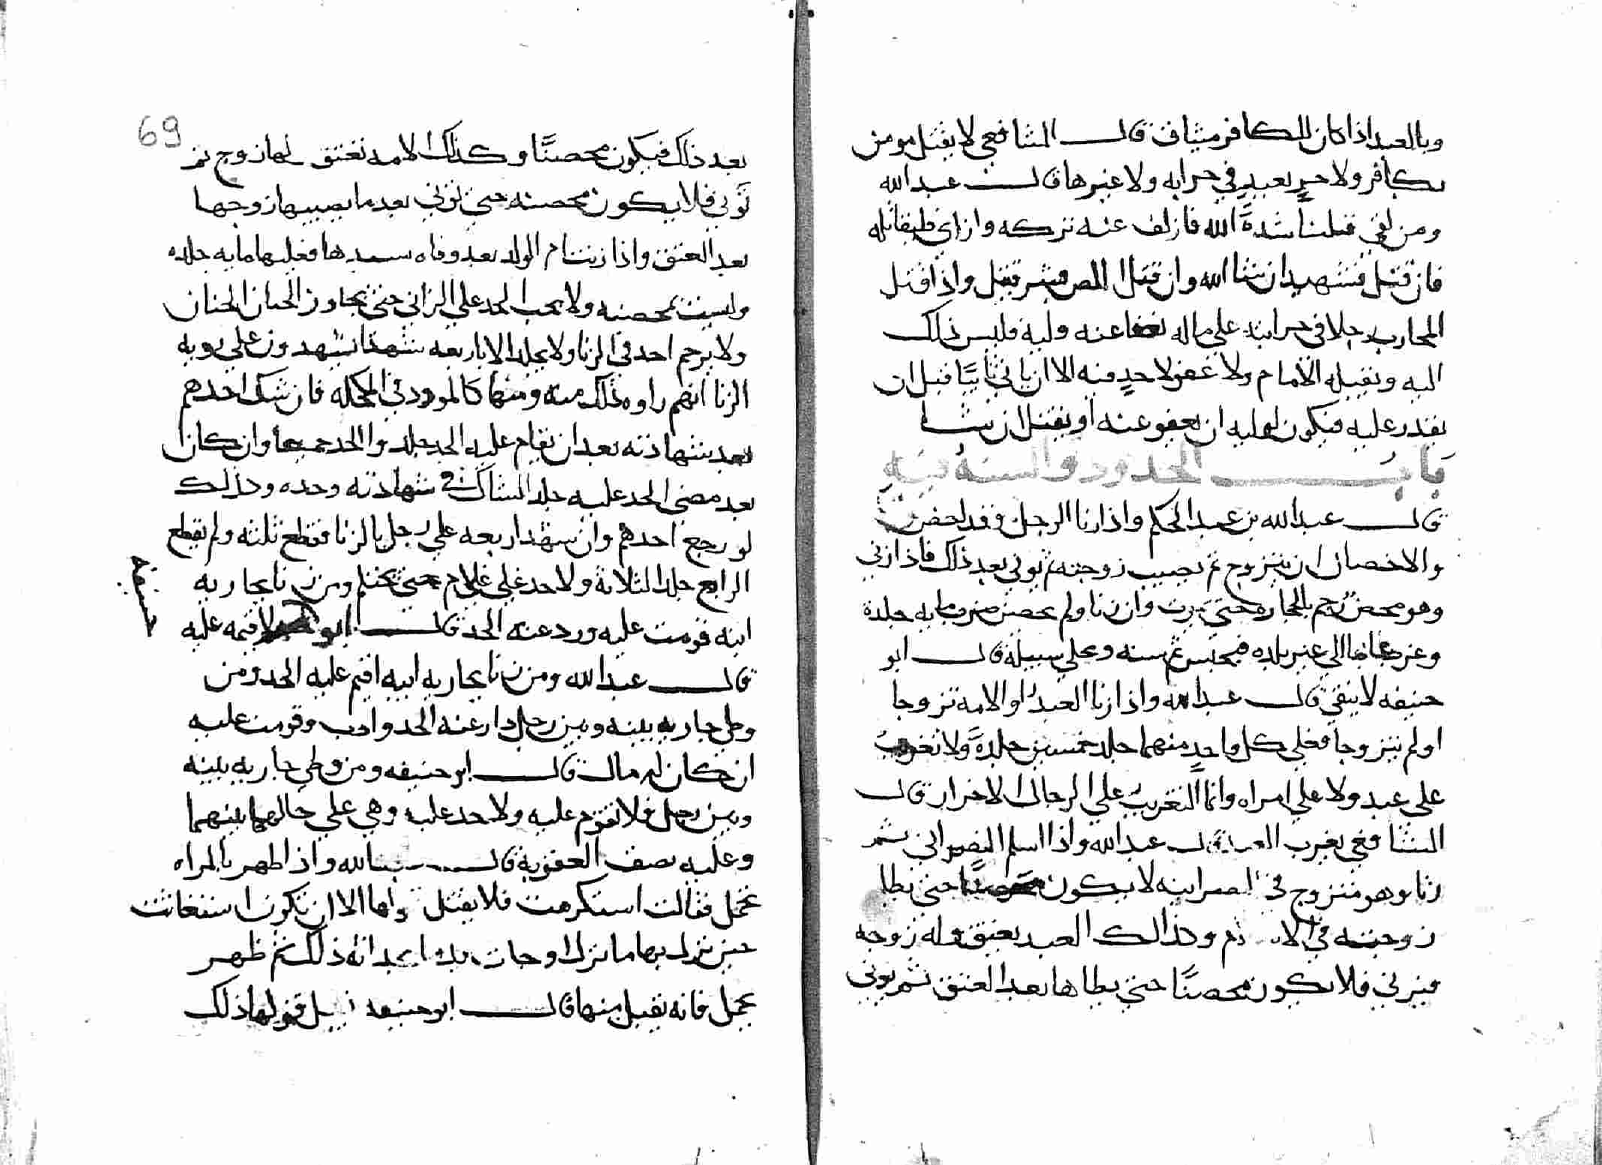 وبالعبد اذا كان للكافر ميثاق قال الشافعي لا يقتل مومن
بكافر ولا حر بعبد في حرابه ولا غيرها قال عبد الله
ومن لقي فليناشده الله فان كف عنه تركه وان ابي فليقاتله
فان قتل فشهيد ان شا الله وان قتل اللص فشر قتيل واذا قتل
المحارب رجلا في حرابته على ماله فعفا عنه وليه فليس ذلك
اليه ويقتله الامام ولا عفو لاحد فيه الا ان ياتي تايبا قبل ان
يقدر عليه فيكون لوليه ان يعفو عنه او يقتل ان شا
باب الحدود والسنه فيه
قال عبد الله بن عبد الحكم واذا زنا الرجل وقد احصن
والاحصان ان يتزوج ثم يصيب زوجته ثم يزني بعد ذلك فاذا زني
وهو محصن رجم بالحجاره حتى يموت وان زنا ولم يحصن ضرب مايه جلدة
وغرب عاما الي غير بلده فيحبس ثم سنه وخلي سبيله قال ابو
حنيفه لا ينفي قال عبد الله واذا زنا العبد او الامه تزوجا
او لم يتزوجا فعلي كل واحد منهما جلد خمسين جلدة ولا تغريب
على عبد ولا علي امراه وانما التغريب علي الرجال الاحرار قال
الشافعي يغرب العبد قال عبد الله واذا اسلم النصراني ثم
زنا وهو متزوج في النصرانيه لا يكون محصنا حتى يطا
زوجته في الاسلام وكذالك العبد يعتق وله زوجه
فيزني فلا يكون محصنا حتي يطاها بعد العتق ثم يزني
69
بعد ذلك فيكون محصنا وكذلك الامه تعتق لها زوج ثم
تزني فلا يكون محصنه حتى تزني بعد ما يصيبها زوجها
بعد العتق واذا زنت ام الولد بعد وفاه سيدها فعليها مايه جلده
وليست بمحصنه ولا يجب الحد علي الزاني حتى يجاوز الختان الختان
ولا يرجم احد في الزنا ولا يجلد الا باربعه شهدا يشهدون علي رويه
الزنا انهم راوه ذلك منه ومنها كالمرود في المكحله فان شك احدهم
بعد شهادته بعد ان يقام عليه الحد جلد والحد جميعا وان كان
بعد مضي الحد عليه جلد الشاك في شهادته وحده وكذلك
لو رجع احدهم وان شهد اربعه على رجل بالزنا فقطع ثلثه ولم يقطع
الرابع جلد الثلاثة ولا حد علي غلام حتي يحتلم ومن زنا بجاريه
ابنه قومت عليه ودرء عنه الحد قال ابو لا قيمه عليه
حنيفة
قال عبد الله ومن زنا بجاريه ابيه اقيم عليه الحد ومن
وطي جاريه بينه وبين رجل دري عنه الحد وادب وقومت عليه
ان كان له مال قال ابو حنيفه ومن وطي جاريه بينه
وبين رجل فلا تقوم عليه ولا حد عليه وهي علي حالها بينهما
وعليه نصف العقوبة قال عبد الله واذا ظهر بالمراه
حمل فقالت استكرهت فلا يقبل ذلك الا ان تكون استغاثت
حين نزل بها ما نزل او جات ذلك ثم ظهر
حمل فانه يقبل منها قال ابو حنيفه يقبل قولها ذلك